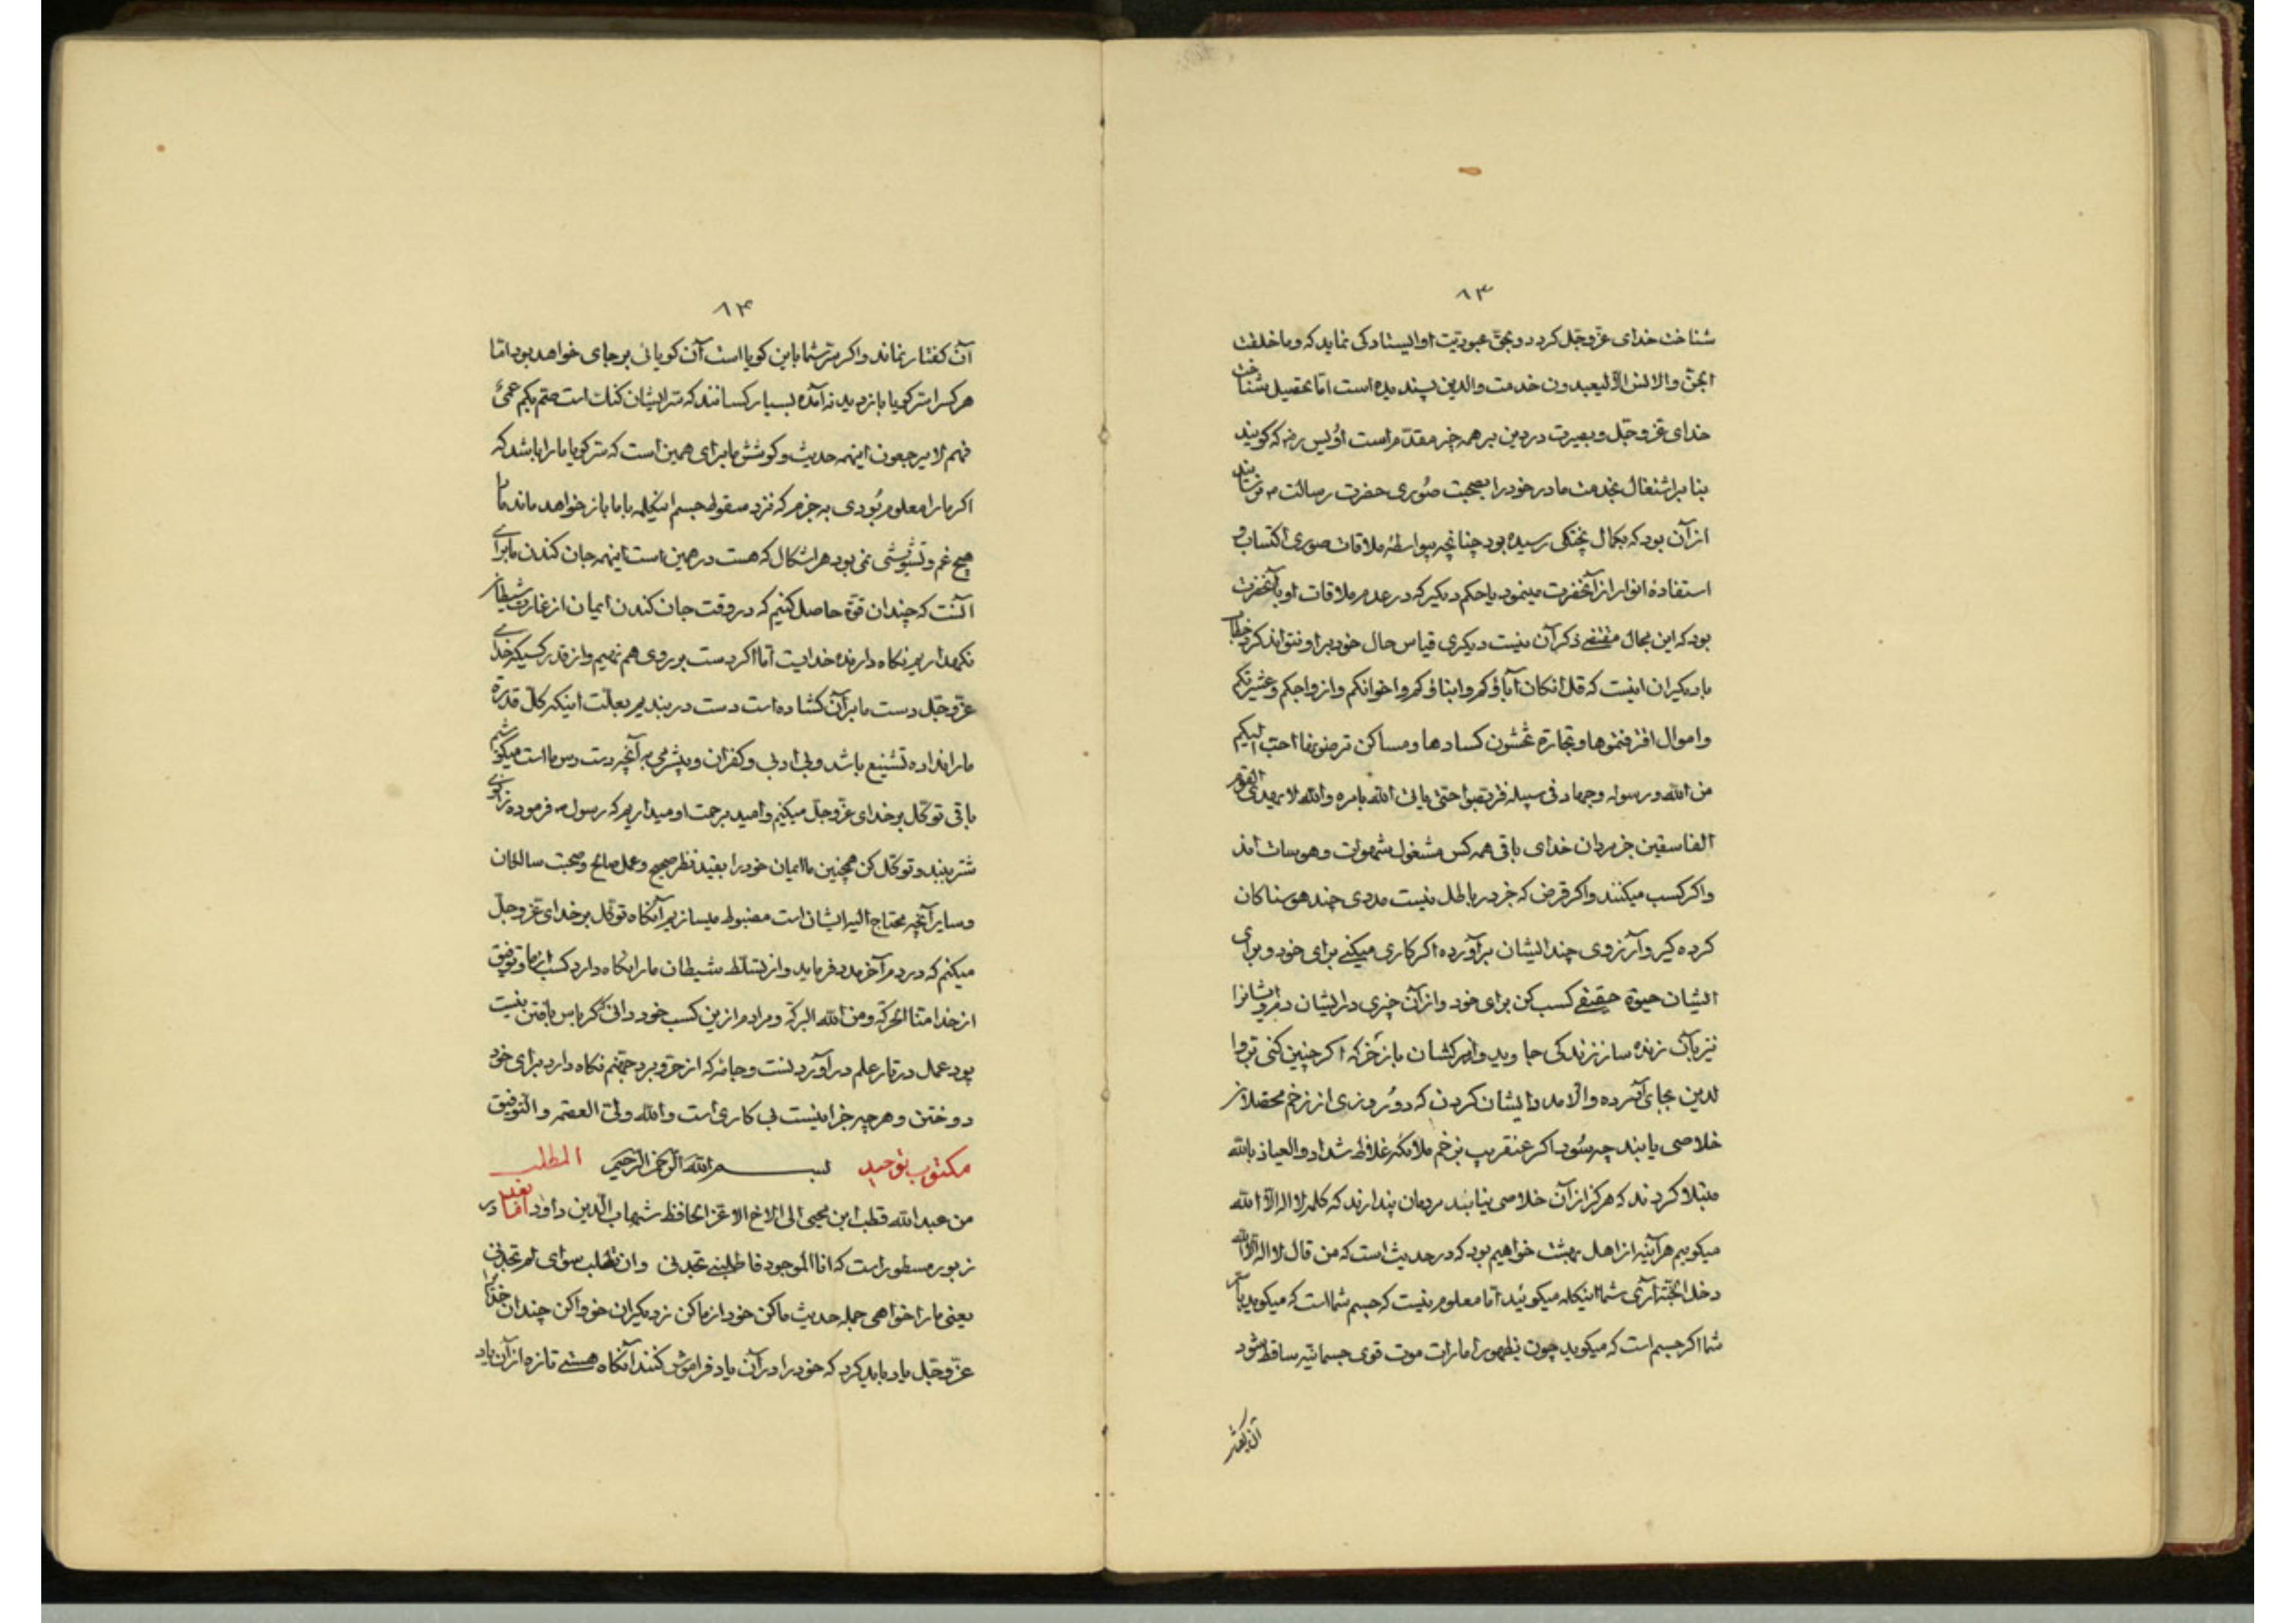 ۸۳
شناخت خدای عزّ و جلّ کردد و بحقّ عبودیّت او ایستادکی نماید که و ما خلقت
الجنّ والانس الّا لیعبدون خدمت والدین پسندیده است امّا تحصیل شناخت
خدای عزّ و جلّ و بصیرت در دین بر همه چیز مقدّم است اُویس رض که کویند
بنا بر اشتغال بخدمت مادر خود را بصحبت صُوری حضرت رسالت ص نرسانید
از آن بود که بکمال پختکی رسیده بود چنانچه بیواسطهٔ ملاقات صوری اکتساب و
استفادهٔ انوار از آنحضرت مینمود یا حکم دیکر که در عدم ملاقات او با آنحضرت
بود که این مجال مقتضی ذکر آن نیست دیکری قیاس حال خود بر او نتواند کرد خطاب
با دیکران اینست که قل ان کان آباؤکم و ابناؤکم و اخوانکم و ازواجکم و عشیرتکم
و اموال اقترفتموها و تجارة تخشون کسادها و مساکن ترضونها احبّ الیکم
من الله و رسوله و جهاد فی سبیله فتربّصوا حتّی یاتی الله بامره والله لا یهدی القوم
الفاسقین جز مردان خدای باقی همه کس مشغول شهوات و هوسات اند
و اکر کسب میکنند و اکر قرض که جز در باطل نیست مددی چند هوسناکان
کرده کیر و آرزوی چند ایشان برآورده اکر کاری میکنی برای خود و برای
ایشان حیوة حقیقی کسب کن برای خود و از آن چیزی در ایشان دم و ایشانرا
نیز بآن زنده ساز زندکی جاوید و اکر چنین کنی برّ وا
لدین بجای آورده والّا مدد ایشان کردن که دو روزی از زخم محصّلان
خلاصی یابند چه سُود اکر عنقریب بزخم ملائکه غلاظ شداد والعیاذ بالله
مبتلا کردند که هرکز از آن خلاصی نیابند مردمان پندارند که کلمه لا اله الّا الله
میکوییم هر آینه از اهل بهشت خواهیم بود که در حدیث است که من قال لا اله الّا الله
دخل الجنّة آری شما اینکلمه میکوئید امّا معلوم نیست که جسم شما است که میکوید یا سرّ
شما اکر جسم است که میکوید چون بظهور امارات موت قوی جسمانیّه ساقط شود
آن کفتار
۸۴
آن کفتار نماند و اکر سرّ شما باین کویا است آن کویائی بر جای خواهد بود امّا
هر کس را سرّ کویا بازدید نه آمده بسیار کسانند که سرّ ایشان کنک است صمّ بکم عمیٌ
فهم لا یرجعون اینهمه حدیث و کوشش ما برای همین است که سرّ کویا ما را باشد که
اکر ما را معلوم بُودی به جزم که نزد سقوط جسم اینکلمه با ما باز خواهد ماند ما را
هیچ غم و تشویشی نمی بود هر اشکال که هست در همین است اینهمه جان کندن ما برای
آنست که چندان قوّة حاصل کنیم که در وقت جان کندن ایمان از غارت شیطان
نکهداریم نکاه دارنده خدایست امّا اکر دست بر روی هم نهیم و از قدر کسبی که خدای
عزّ و جلّ دست ما بر آن کشاده است دست در بندیم بعلّت اینکه کلّ قدرة
ما را نداده تشنیع باشد و بی ادبی و کفران و بیشرمی به آنچه دست رس ما است میکوشیم
باقی توکّل بر خدای عزّ و جلّ میکنیم و امید برحمت او میداریم که رسول ص فرموده زانوی
شتر ببند و توکّل کن همچنین ما ایمان خود را بقید نظر صحیح و عمل صالح و صحبت صالحان
و سایر آنچه محتاج الیه ایشان است مضبوط میسازیم آنکاه توکّل بر خدای عزّ و جلّ
میکنم که در دم آخر مدد فرماید و از تسلّط شیطان ما را نکاه دارد کسب از ما و توفیق
از خدا منّا الحرکة و من الله البرکة و مرادم از ین کسب خود دانی که کرباس بافتن نیست
پود عمل در تار علم در آوردنست و جامهٔ که از حرّ و برد جهنّم نکاه دارد برای خود
دوختن و هر چه جز اینست بی کاری است والله ولیّ العصمة والتوفیق
مکتوب توحید بسم الله الرّحمن الرّحیم المطلب
من عبدالله قطب ابن محیی الی الاخ الاعزّ الحافظ شهاب الدّین داود امّا بعد در
زبور مسطور است که انا الموجود فاطلبنی تجدنی وان تطلب سوای لم تجدنی
یعنی ما را خواهی جمله حدیث ما کن خود از ما کن ز دیکران خو واکن چندان خدا را
عزّ و جلّ یاد باید کرد که خود را در آن یاد فراموش کنند آنکاه هستی تازه از آن یاد